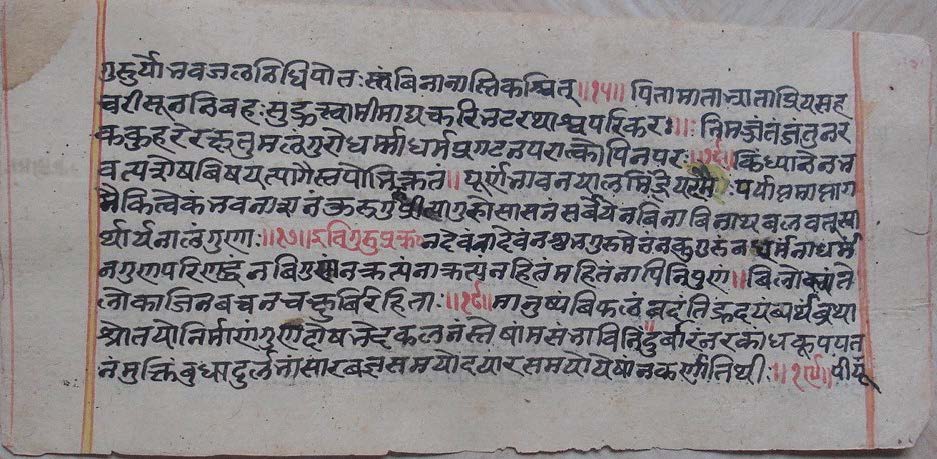 गुरुर्यो भवजलनिधिपोतः स्तं बिना नास्ति कश्चित् ॥१५॥ पिता माता भ्राता प्रियसह
चरी सूनुनिवहः सुहृत्स्वामी माद्यत्करिभटरथाश्वपरिकरः ॥ निमज्जंतं जंतुं नर
ककुहरे रक्षुतुमलं गुरोर्धर्माधर्मप्रगटनपरात्कोपि न परः ॥१६॥ किं ध्यानेन भ
वत्वशेषविषयत्यागैस्तपोभिः कृतं ॥ पूर्णं भावनयालमिंद्रियदमैः पर्याप्तमाप्ताग
मैः किं त्वेकं भवनाशनं कुरु गुरुप्रीत्या गुरोः सासनं सर्वे येन बिना बिनाथबलवत्स्वा
र्थाय नालं गुणाः ॥१७॥ इति गुरुप्रक्रम न देवं नादेवं न शुभगुरुमेवं न कुगुरुं न धर्मं नाधर्मं
न गुणपरिणद्धं न बिगुणं न कृत्यं नाकृत्यं न हितमहितं नापि निपुणं ॥ बिलोकंते
लोका जिनबचनचक्षुर्बिरहिताः ॥१८॥ मानुष्यं बिफलं बदंति हृदयं ब्यर्थं बृथा
श्रोतयो निर्माणं गुणदोषभेदकलनं तेषामसंभाविनिं दुर्बारं नरकांधकूपपत
नं मुक्तिं बुधा दुर्लभां सारबज्ञसमयो दयारसमयो येषां न कर्णातिथीः ॥१९॥ पीयू